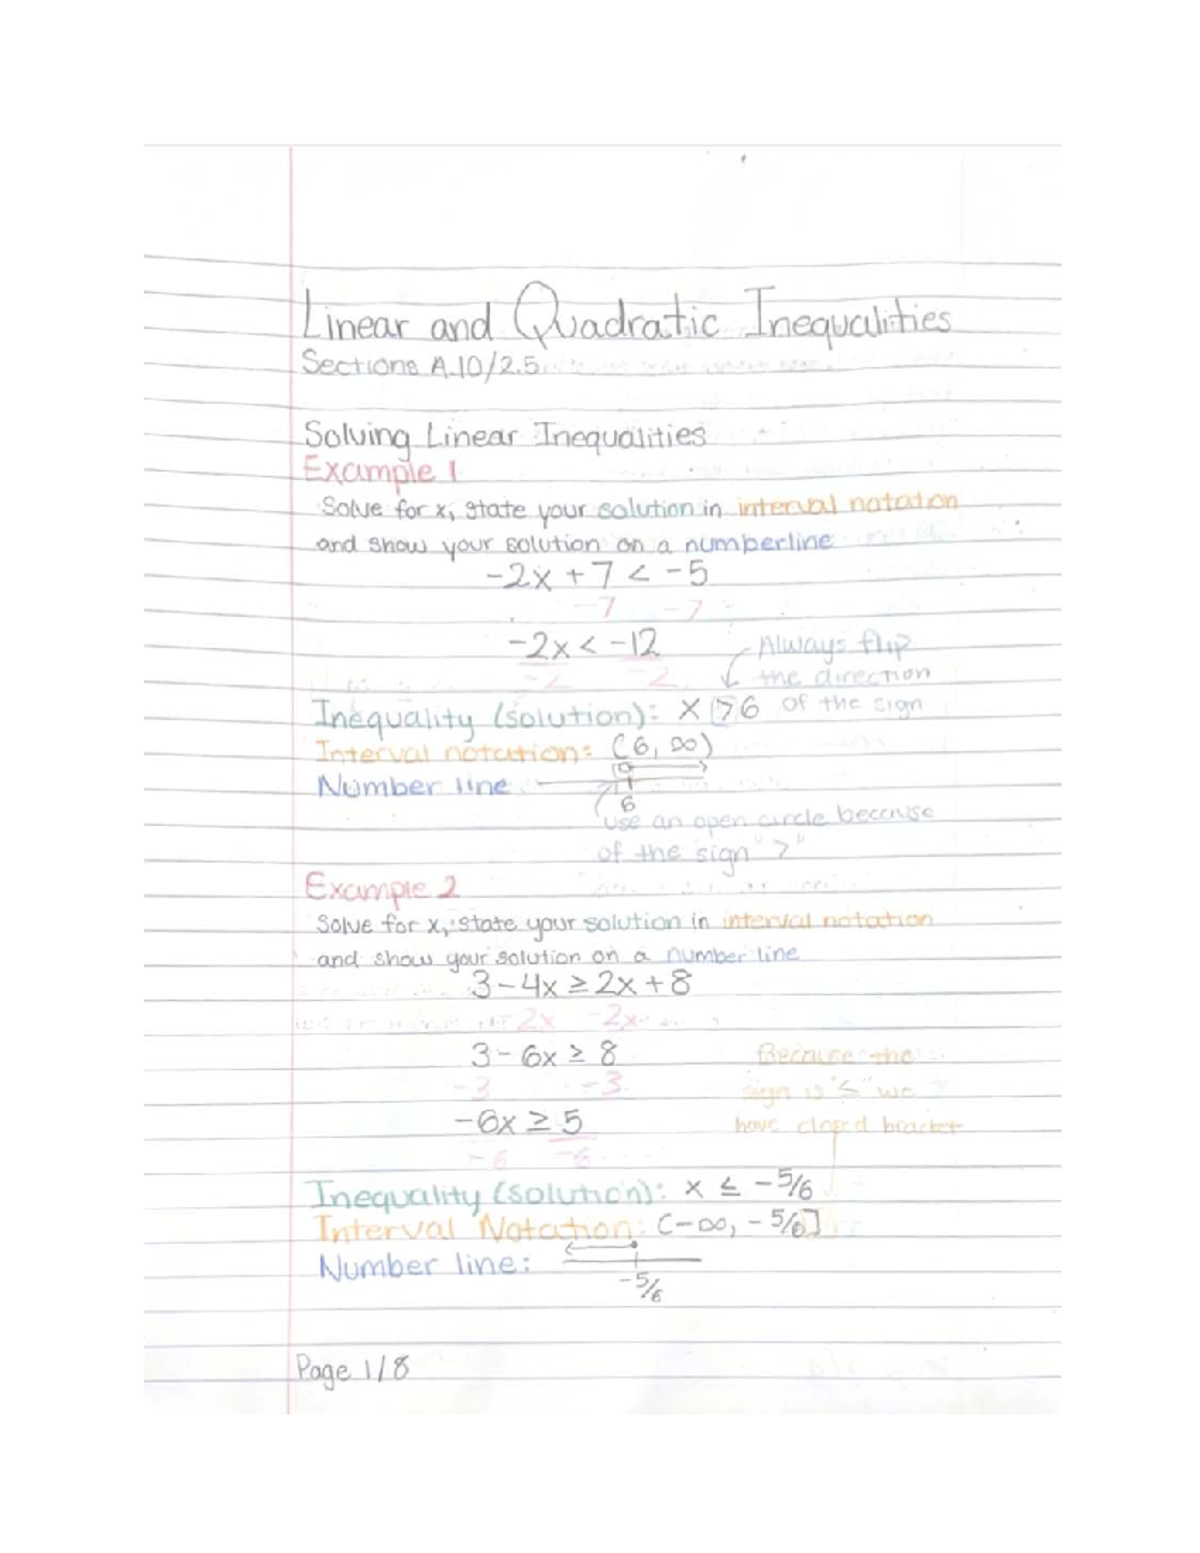 Linear and Quadratic Inequalities
Sections A.10/2.5
Solving Linear Inequalities
Example 1
Solve for x, state your solution in interval notation
and show your solution on a numberline
-2x + 7 < -5
-7 -7
-2x < -12
-2 -2
Always flip
the direction
of the sign
Inequality (solution): x > 6
Interval notation: (6, ∞)
Number line
6
use an open circle because
of the sign ">"
Example 2
Solve for x, state your solution in interval notation
and show your solution on a number line
3 - 4x ≥ 2x + 8
-2x -2x
3 - 6x ≥ 8
-3 -3
-6x ≥ 5
-6 -6
Because the
sign is "≤" we
have closed bracket
Inequality (solution): x ≤ -5/6
Interval Notation: (-∞, -5/6]
Number line:
-5/6
Page 1/8